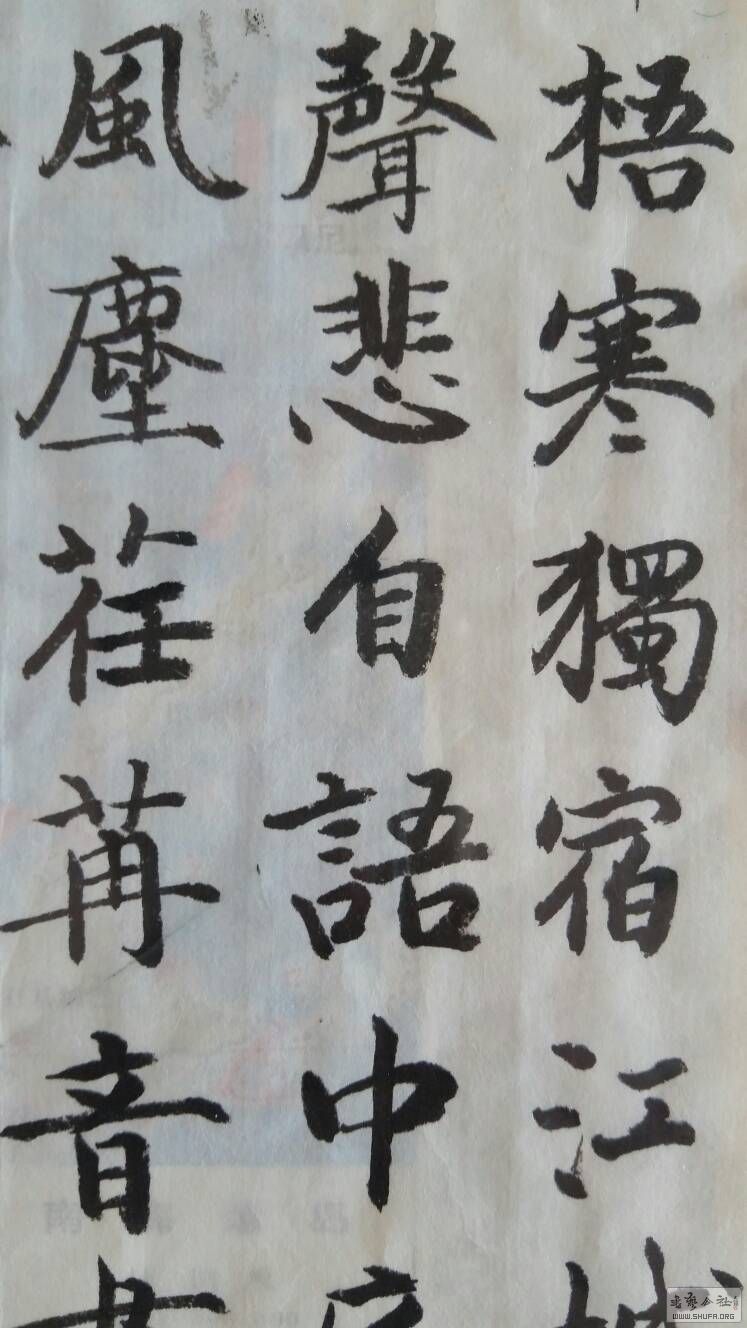 梧寒獨宿江城
聲悲自語中
風塵荏苒音書
WWW.SHUFA.ORG